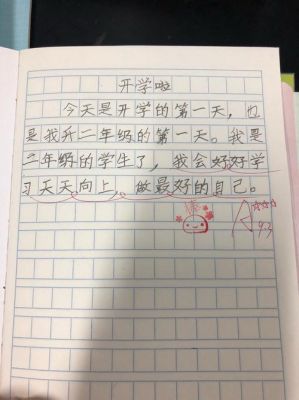 开学啦
今天是开学的第一天，也
是我升二年级的第一天。我是
二年级的学生了，我会好好学
习天天向上，做最好的自己。
棒
A☆☆☆
93